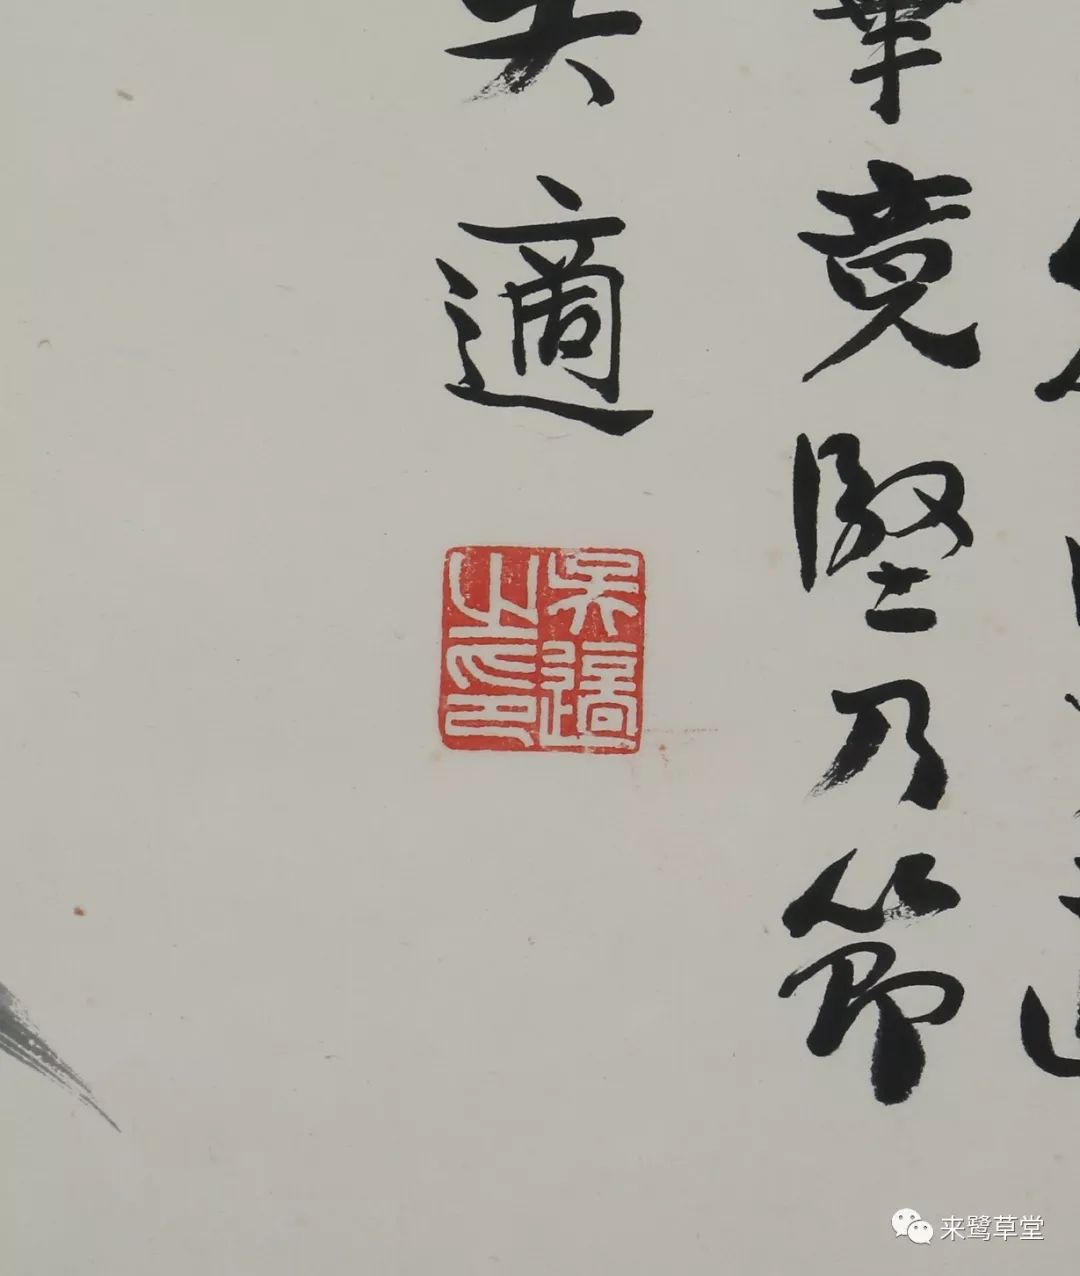 畢竟堅乃節
吳適
吳適之印
来鹭草堂